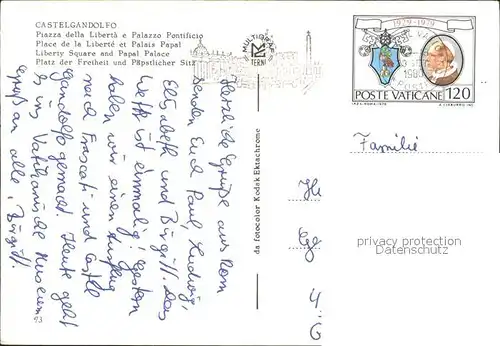 CASTELGANDOLFO
Piazza della Libertà e Palazzo Pontificio
Place de la Liberté et Palais Papal
Liberty Square and Papal Palace
Platz der Freiheit und Päpstlicher Sitz
MULTIGRAF
TERNI
1929-1979
POSTE VATICANE 120
Herzliche Grüße aus Rom
senden Euch Paul, Ludwig,
Elisabeth und Birgitt. Das
Wetter ist einmalig. Gestern
haben wir einen Ausflug
nach Frascati und Castel
Gandolfo gemacht. Heute geht
es ins Vatikanische Museum
Gruß an alle, Birgitt.
93
da fotocolor Kodak Ektachrome
Familie
privacy protection
Datenschutz